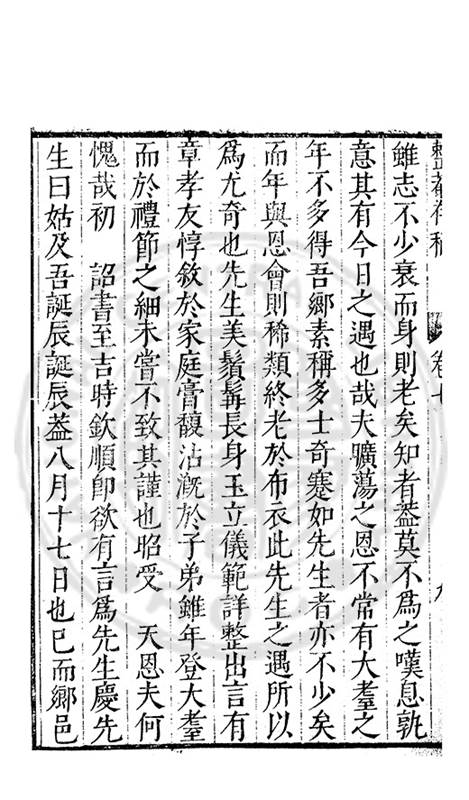 整菴存稿　卷七　九
雖志不少衰而身則老矣知者葢莫不爲之嘆息孰
意其有今日之遇也哉夫曠蕩之恩不常有大耋之
年不多得吾鄉素稱多士奇蹇如先生者亦不少矣
而年與恩會則稀類終老於布衣此先生之遇所以
爲尤奇也先生美鬚髯長身玉立儀範詳整出言有
章孝友惇敘於家庭膏馥沾漑於子弟雖年登大耋
而於禮節之細未嘗不致其謹也昭受　天恩夫何
愧哉初　詔書至吉時欽順卽欲有言爲先生慶先
生曰姑及吾誕辰誕辰葢八月十七日也已而鄉邑